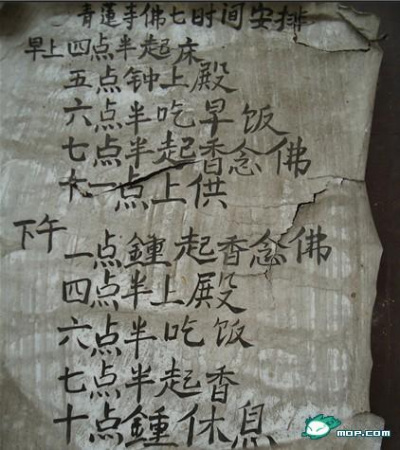 青莲寺佛七时间安排
早上四点半起床
五点钟上殿
六点半吃早饭
七点半起香念佛
十一点上供
下午
一点鍾起香念佛
四点半上殿
六点半吃饭
七点半起香
十点鍾休息
MOP.COM